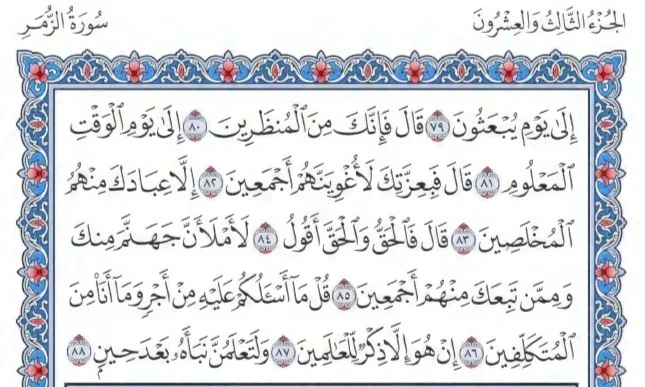 الجُزْءُ الثَّالِثُ وَالعِشْرُونَ سُورَةُ الزُّمَر
إِلَىٰ يَوْمِ يُبْعَثُونَ ٧٩ قَالَ فَإِنَّكَ مِنَ ٱلْمُنظَرِينَ ٨٠ إِلَىٰ يَوْمِ ٱلْوَقْتِ
ٱلْمَعْلُومِ ٨١ قَالَ فَبِعِزَّتِكَ لَأُغْوِيَنَّهُمْ أَجْمَعِينَ ٨٢ إِلَّا عِبَادَكَ مِنْهُمُ
ٱلْمُخْلَصِينَ ٨٣ قَالَ فَٱلْحَقُّ وَٱلْحَقَّ أَقُولُ ٨٤ لَأَمْلَأَنَّ جَهَنَّمَ مِنكَ
وَمِمَّن تَبِعَكَ مِنْهُمْ أَجْمَعِينَ ٨٥ قُلْ مَآ أَسْـَٔلُكُمْ عَلَيْهِ مِنْ أَجْرٍ وَمَآ أَنَا۠ مِنَ
ٱلْمُتَكَلِّفِينَ ٨٦ إِنْ هُوَ إِلَّا ذِكْرٌ لِّلْعَٰلَمِينَ ٨٧ وَلَتَعْلَمُنَّ نَبَأَهُۥ بَعْدَ حِينٍۭ ٨٨